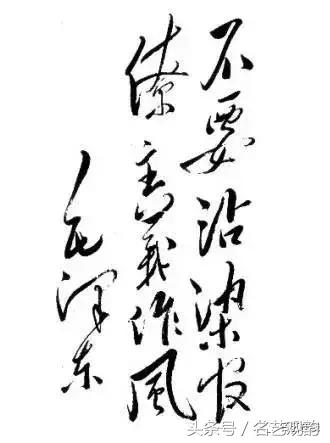 不要沾染官
僚主義作風
毛泽东
头条号 / 名艺